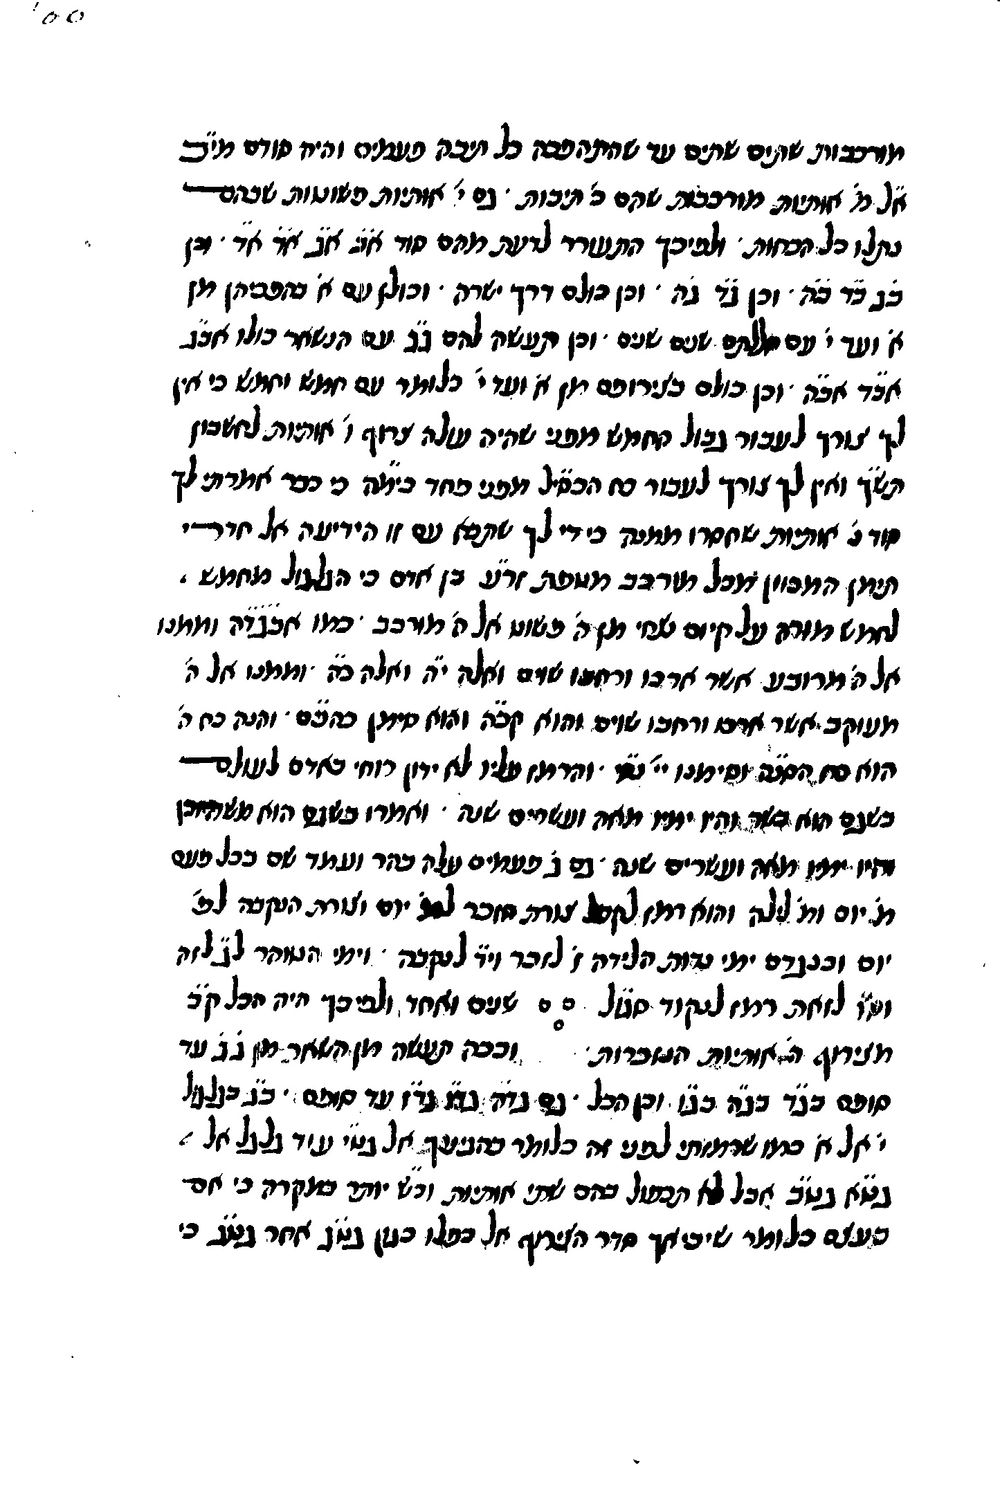 מורכבות שתים שתים עד שהתהפכה כל תיבה פעמים והיה סודם מי״ב
א״ל מ׳ אותיות מורכבות שהם כ׳ תיבות ׳ גם י׳ אותיות פשוטות שבהם
נתלו כל הכחות ׳ ולפיכך התעורר לדעת מהם סוד א״ב א״ג א״ד ׳ וכן
ב״ג ב״ד ב״ה ׳ וכן ג״ד ג״ה ׳ וכן כולם דרך ישרה ׳ וכולן עם א׳ בהפכיהן מן
א׳ ועד י׳ עם שנים שנים ׳ וכן תעשה להם ג״ג עם הנשאר כולו אב״ג
אב״ד אב״ה ׳ וכן כולם בצירופם מן א׳ ועד י׳ כלומר עם חמש וחמש כי אין
לך צורך לעבור גבול החמש מפני שהיה עולה צרוף ו׳ אותיות לחשבון
תש״ך ואין לך צורך לעבור כח הכס״יל מפני פחד כימ״ה כי כבר אמרתי לך
סוד אותיות שחסרו ממנה כי די לך שתבא עם זו הידיעה אל חדרי
תימן המכוון מכל מורכב מטפת זר״ע בן אדם כי הגלגול מחמש
לחמש מורה על קיום מן ה׳ פשוט אל ה׳ מורכב ׳ כמו אבגד״ה וממנו
אל ה׳ מרובע אשר ארכו ורחבו שוים ואלה י״ה ואלה כ״ה ׳ וממנו אל ה׳
מעוקב אשר ארכו ורחבו שוים והוא קכ״ה והוא סימן כהב״ם ׳ והנה כח ה׳
הוא כח וסימנו ׳ והרמז עליו לא ידון רוחי באדם לעולם
בשגם הוא בשר והיו ימיו מאה ועשרים שנה ׳ ואמרו בשגם הוא משה
והיו ימיו מאה ועשרים שנה ׳ גם ג׳ פעמים עלה בהר ועמד שם בכל פעם
מ׳ יום ומ׳ לילה והוא רמז לקבל צורת הזכר למ׳ יום וצורת הנקבה לפ׳
יום וכנגדם ימי נדות הלידה ז׳ לזכר וי״ד לנקבה ׳ וימי הטוהר ל״ג לזה
וס״ו לזאת רמז לנקוד סגו״ל שנים ואחד ולפיכך היה הכל ק״כ
מצירוף ה׳ אותיות הנזכרות ׳ וככה תעשה מן השאר מן ב״ג עד
סופם בג״ד בג״ה בג״ו וכן הכל ׳ גם גד״ה גד״ו גד״ז עד סופם ׳ ב״ג בגלגול
י׳ אל א׳ כמו שרמזתי לפני זה כלומר בהגיעך אל גט״י עוד גלגל אל
גט״א גט״ב אבל לא תכפול בהם שתי אותיות וכ״ש יותר במקרה כי אם
בעצם כלומר שיביאך סדר הצירוף אל כפלו כגון גט״ג אחר גט״ב כי